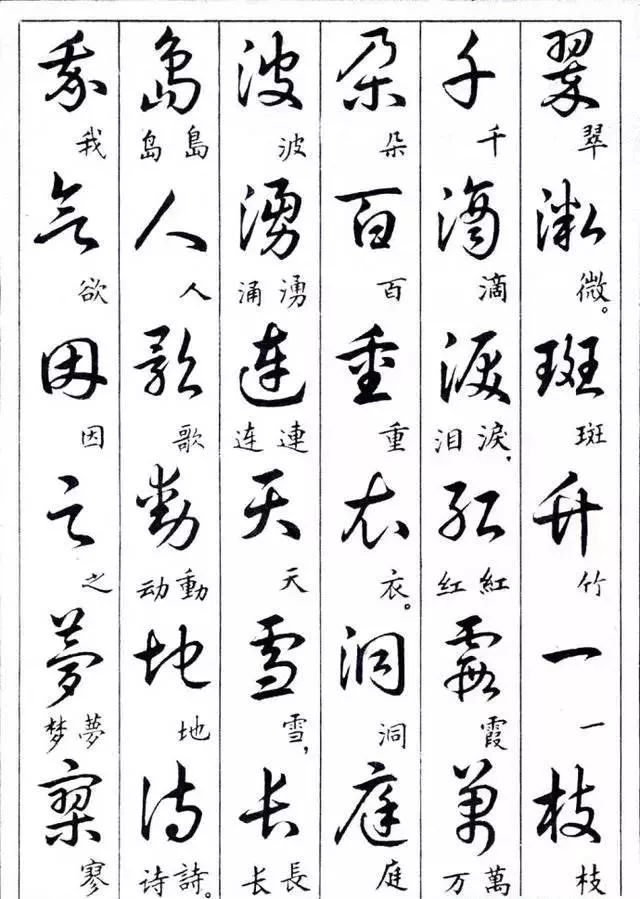 翠微斑竹一枝
翠 微。 斑 竹 一 枝
千滴淚紅霞萬
千 滴 淚,泪 紅红 霞 萬万
朵百重衣洞庭
朵 百 重 衣。 洞 庭
波湧連天雪長
波 湧涌 連连 天 雪, 長长
島人歌動地詩
島岛 人 歌 動动 地 詩。诗
我欲因之夢寥
我 欲 因 之 夢梦 寥